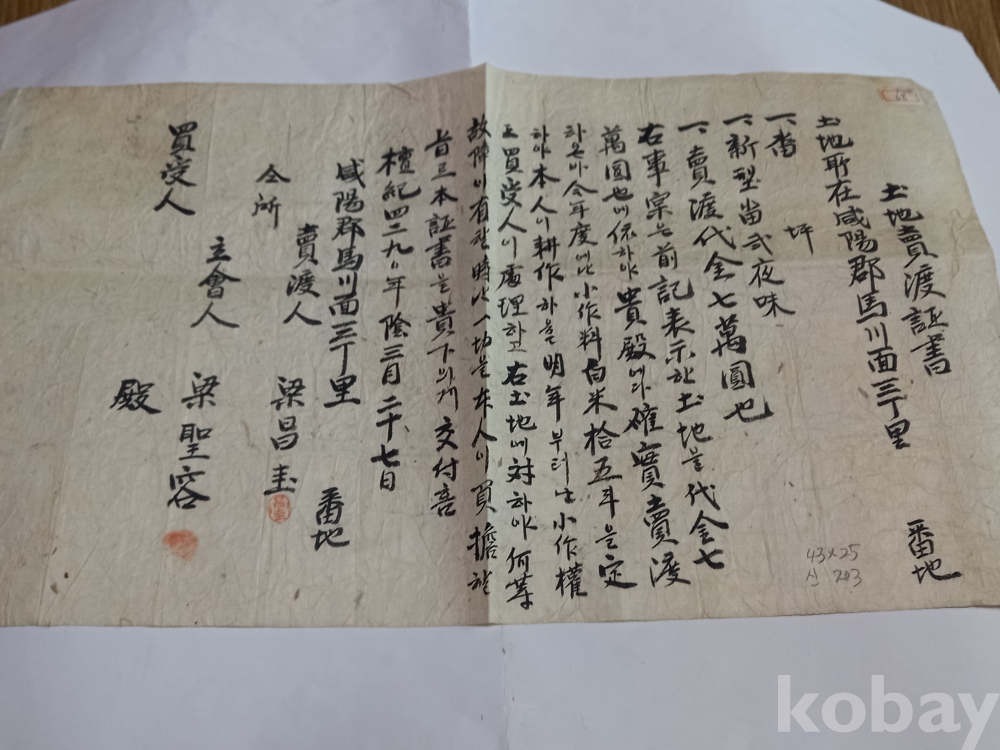 土地賣渡証書
土地所在咸陽郡馬川面三丁里 番地
一、番 坪
一、新型畓弍夜味
一、賣渡代金七萬圓也
右事宗은前記表示한土地을代金七
萬圓也에依하야貴殿에다確實賣渡
하온바今年度에난小作料白米拾五斗을定
하야本人이耕作하옵明年부터난小作權
도買受人이處理하고右土地에対하야何等
故障이有할時에난一切을本人이負擔할
旨로本証書을貴下의게交付홈
檀紀四二九〇年陰三月二十七日
咸陽郡馬川面三丁里 番地
賣渡人 梁昌圭
仝所
立會人 梁聖容
買受人 殿
43×25
신 203
kobay